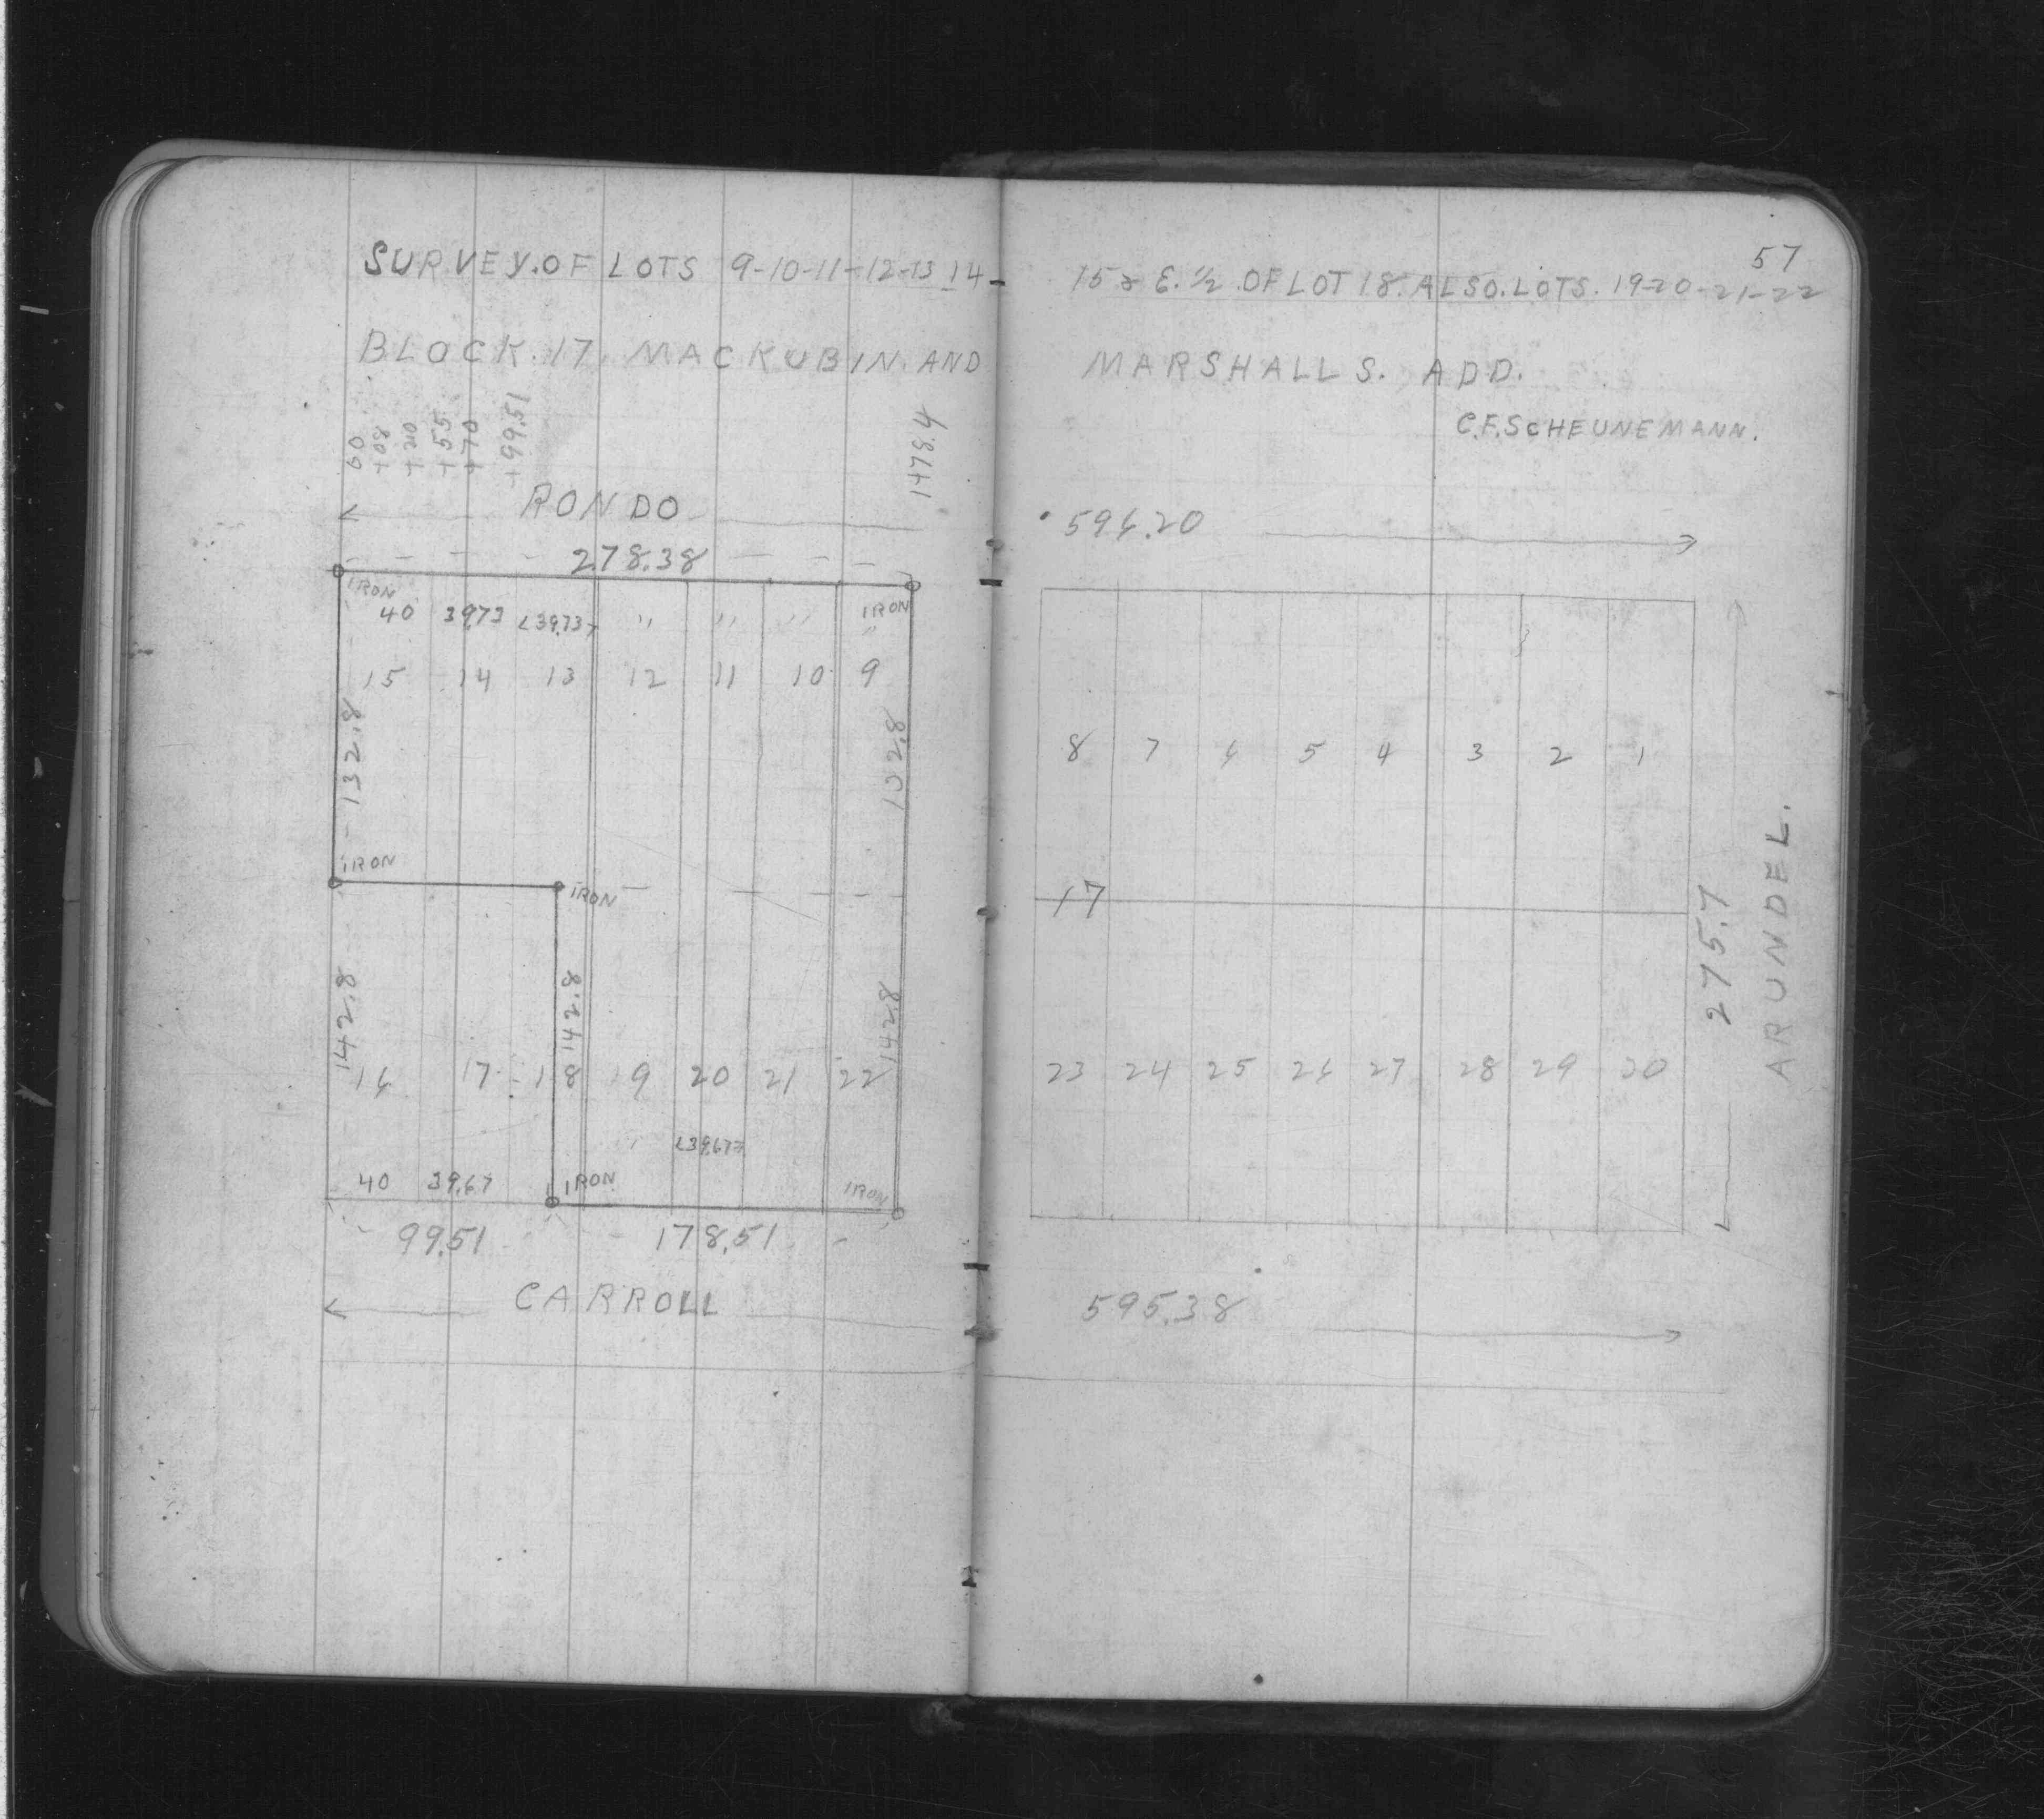 57
SURVEY. OF LOTS 9-10-11-12-13 14-15 & E. 1/2 OF LOT 18. ALSO. LOTS. 19-20-21-22
BLOCK. 17. MACKUBIN. AND MARSHALLS. ADD.
C.F. SCHEUNEMANN.
60
+08
+20
+55
+70
+99.51
1478.4
RONDO 596.20
278.38
IRON IRON
40 39.73 <39.73> " " " "
15 14 13 12 11 10 9
8 7 6 5 4 3 2 1
132.8 132.8
IRON IRON
17
142.8 142.8 142.8
275.7
ARUNDEL.
16 17 18 19 20 21 22
23 24 25 26 27 28 29 30
<39.67>
40 39.67 IRON IRON
99.51 178.51
CARROLL 595.38